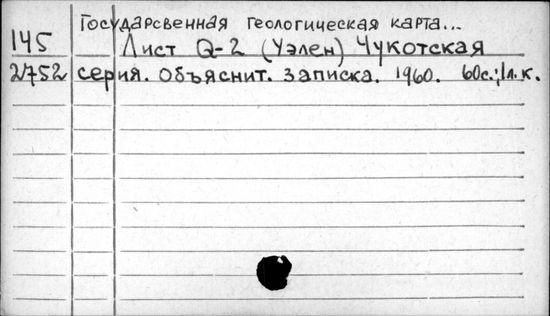 Государсвенная геологическая карта...
145 Лист Q-2 (Уэлен) Чукотская
21752 серия. Объяснит. записка. 1960. 60с.; 1л.к.